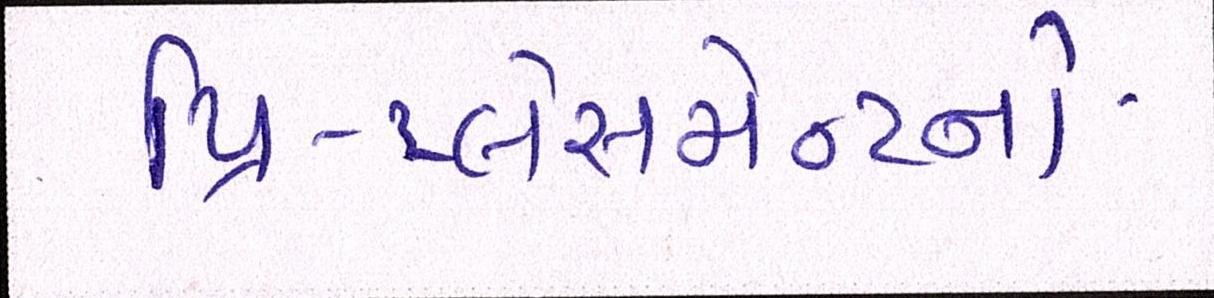 પ્રિ-પ્લેસમેન્ટનો